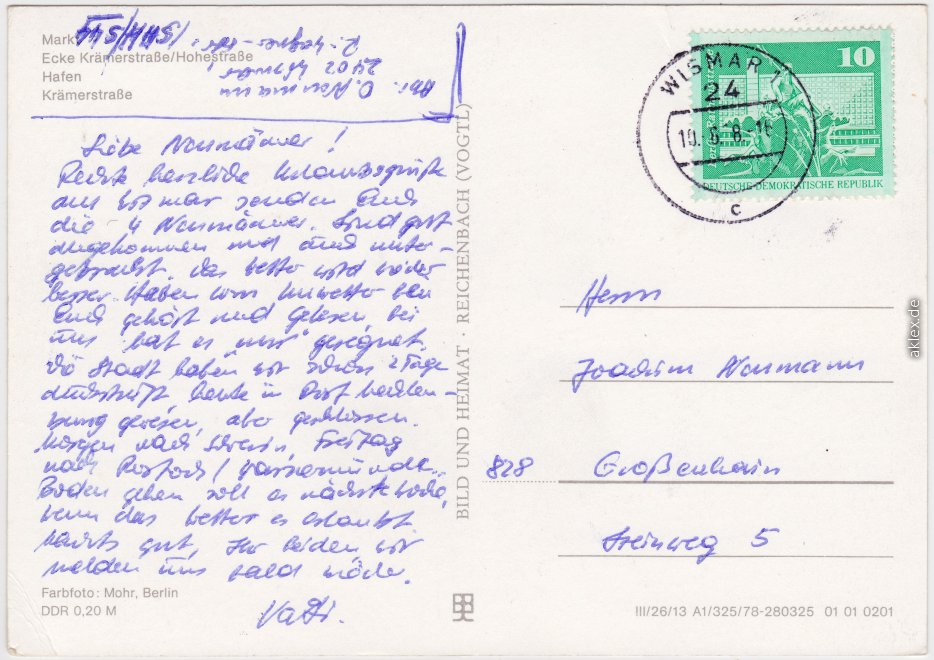 Mark
Ecke Krämerstraße/Hohestraße
Hafen
Krämerstraße
Abs. O. Neumann
2402 Wismar
Liebe Neumänner!
Recht herzliche Urlaubsgrüße
aus Wismar senden Euch
die 4 Neumänner. Sind gut
angekommen und auch unter-
gebracht. Das Wetter wird wieder
besser. Haben vom Unwetter bei
Euch gehört und gelesen, bei
uns hat es nur geregnet.
Die Stadt haben wir schon 2 Tage
durchstreift, heute in
gewesen, aber geschlossen.
Morgen nach Schwerin, Freitag
nach Rostock/Warnemünde.
Baden gehen soll es nächste Woche,
wenn das Wetter es erlaubt.
Macht's gut, Ihr beiden wir
melden uns bald wieder.
Vati.
Farbfoto: Mohr, Berlin
DDR 0,20 M
BILD UND HEIMAT · REICHENBACH (VOGTL)
WISMAR 1
24
c
10
DEUTSCHE DEMOKRATISCHE REPUBLIK
Herrn
Joachim Neumann
828 Großenhain
Steinweg 5
III/26/13 A1/325/78-280325 01 01 0201
aklex.de